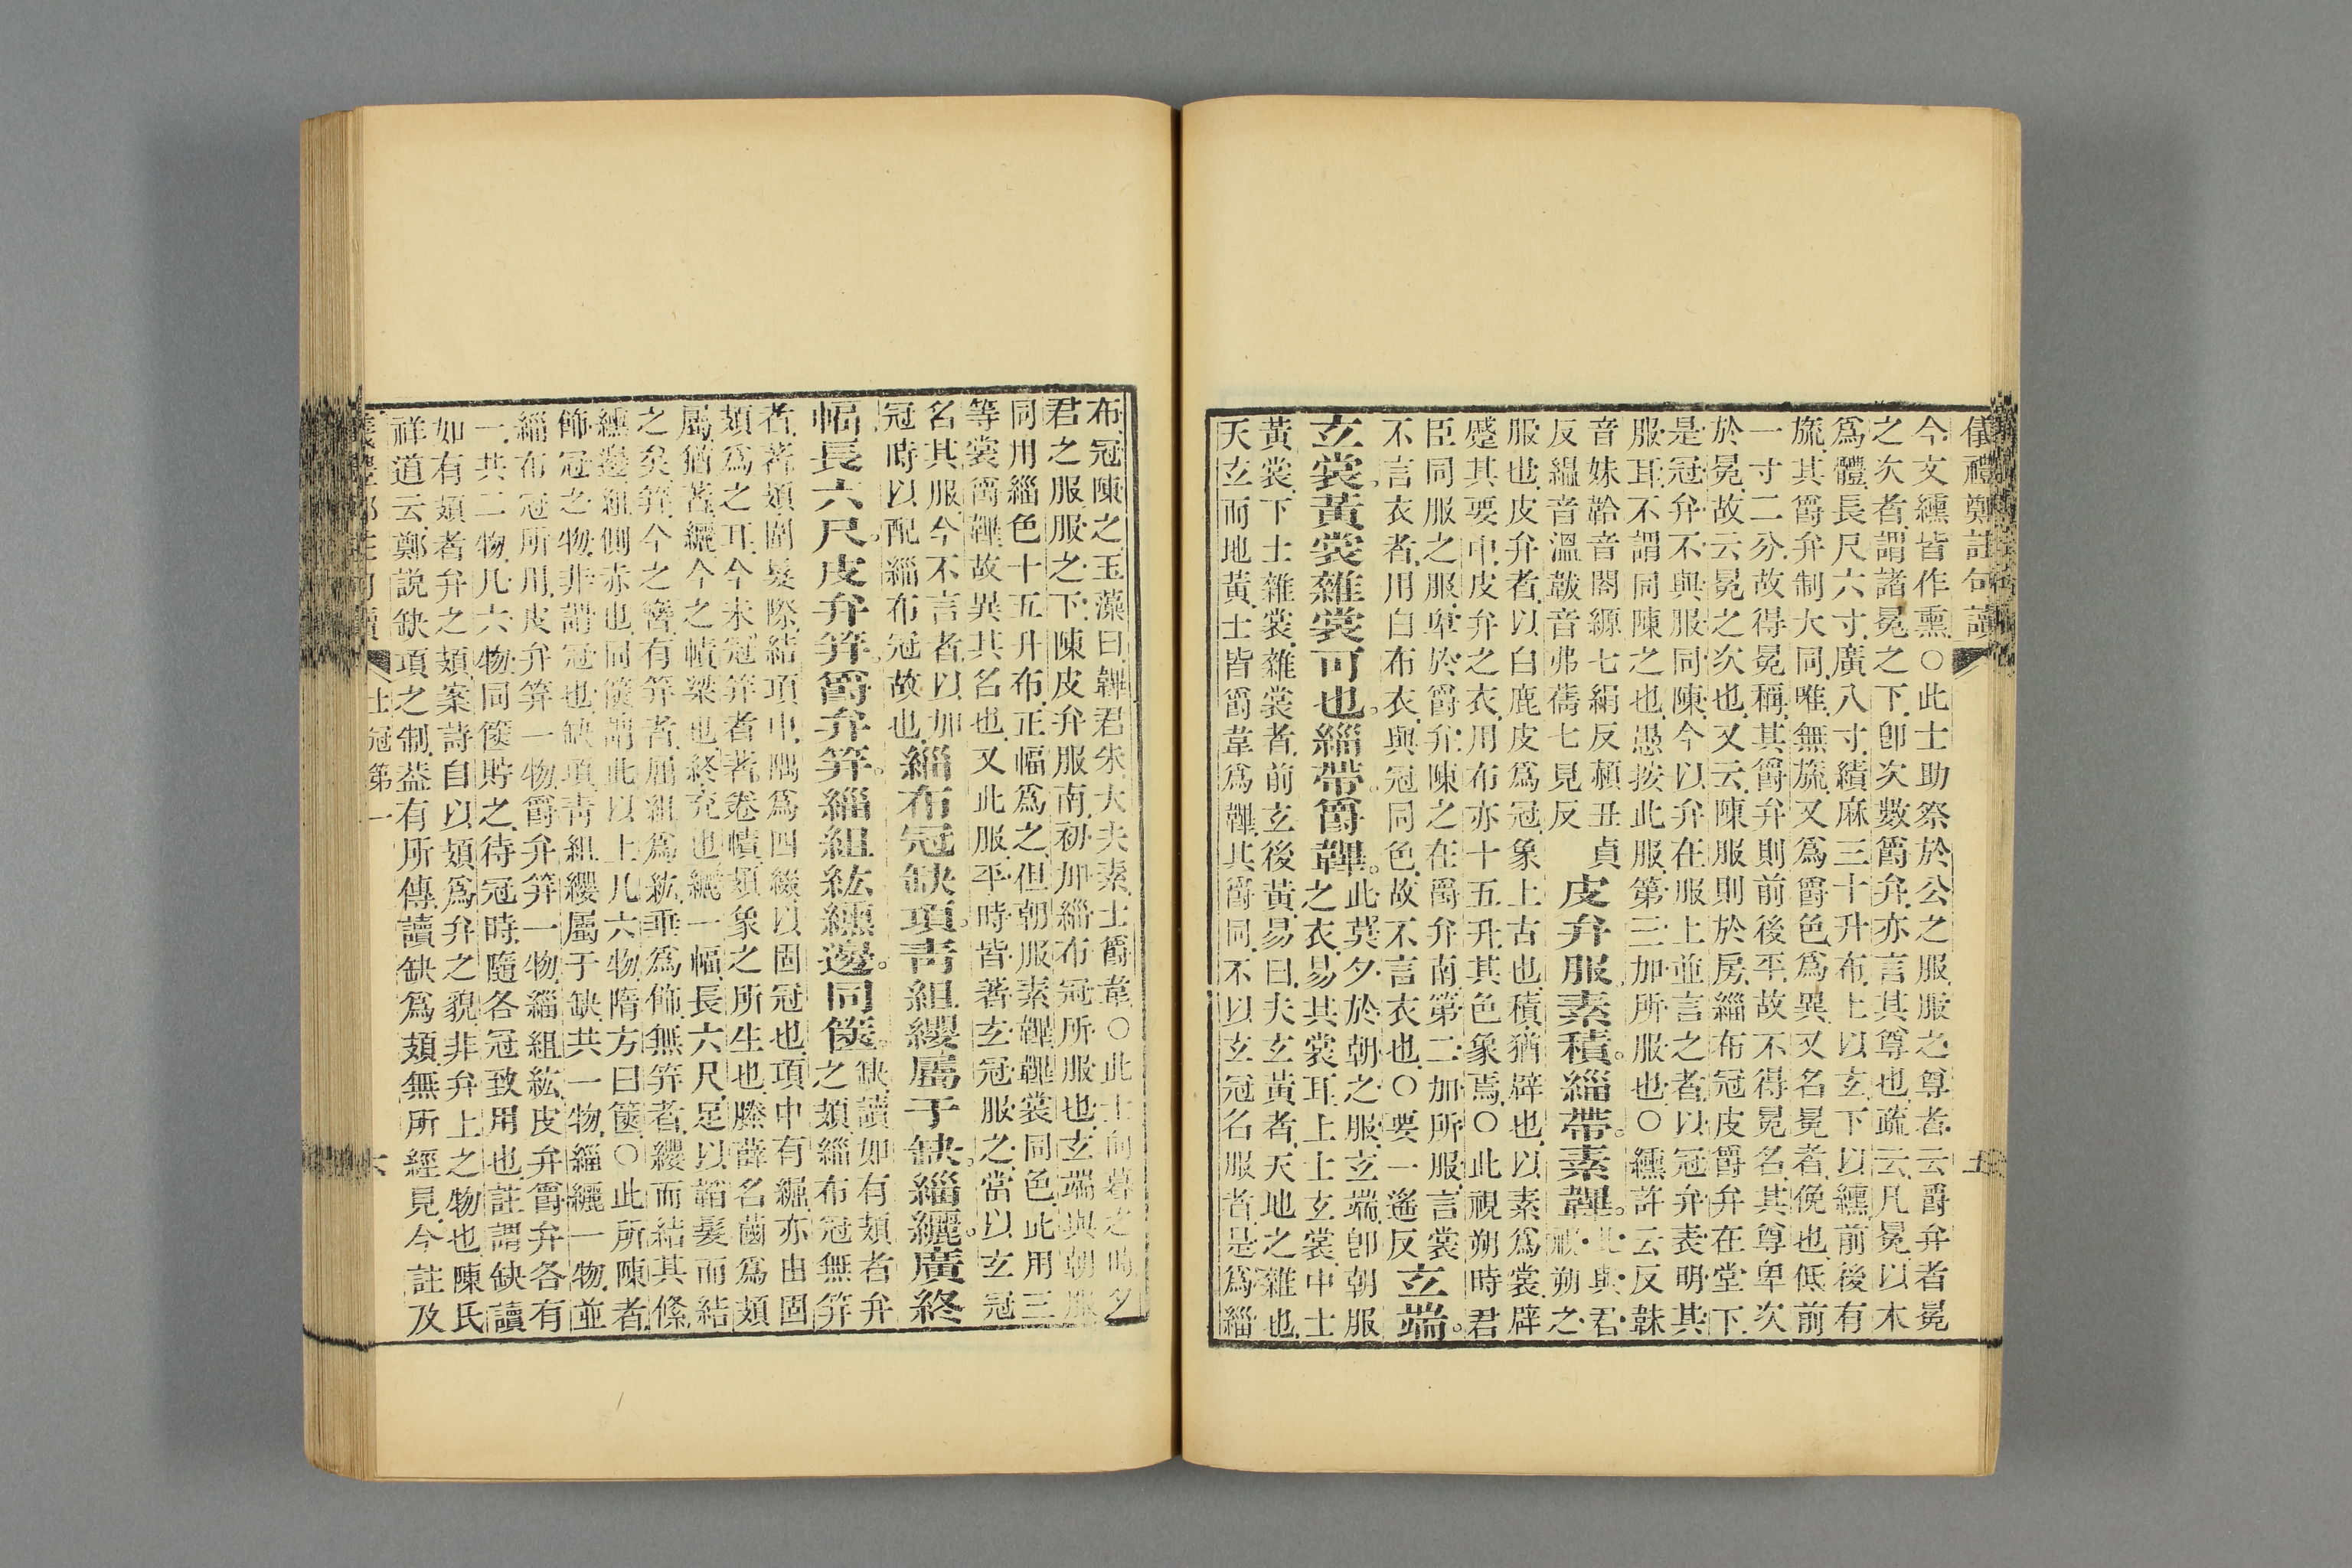 儀禮鄭註句讀 五
今文纁皆作熏○此士助祭於公之服服之尊者云爵弁者冕
之次者謂諸冕之下卽次數爵弁亦言其尊也疏云凡冕以木
爲體長尺六寸廣八寸績麻三十升布上以玄下以纁前後有
旒其爵弁制大同唯無旒又爲爵色爲異又名冕者俛也低前
一寸二分故得冕稱其爵弁則前後平故不得冕名其尊卑次
於冕故云冕之次也又云陳服則於房緇布冠皮弁爵弁在堂下
是冠弁不與服同陳今以弁在服上並言之者以冠弁表明其
服耳不謂同陳之也愚按此服第三加所服也○纁許云反韎
音妹韐音閤縓七絹反赬丑貞
反縕音溫韍音弗蒨七見反
皮弁服素積緇帶素韠
此與君
視朔之
服也皮弁者以白鹿皮爲冠象上古也積猶辟也以素爲裳辟
蹙其要中皮弁之衣用布亦十五升其色象焉○此視朔時君
臣同服之服卑於爵弁陳之在爵弁南第二加所服言裳
不言衣者用白布衣與冠同色故不言衣也○要一遙反
玄端
玄裳黃裳雜裳可也緇帶爵韠
此莫夕於朝之服玄端卽朝服
之衣易其裳耳上士玄裳中士
黃裳下士雜裳雜裳者前玄後黃易曰夫玄黃者天地之雜也
天玄而地黃士皆爵韋爲韠其爵同不以玄冠名服者是爲緇
布冠陳之玉藻曰韠君朱大夫素士爵韋○此士向暮之時夕
君之服服之下陳皮弁服南初加緇布冠所服也玄端與朝服
同用緇色十五升布正幅爲之但朝服素韠韠裳同色此用三
等裳爵韠故異其名也又此服平時皆著玄冠服之當以玄冠
名其服今不言者以加
冠時以配緇布冠故也
緇布冠缺項青組纓屬于缺緇纚廣終
幅長六尺皮弁笄爵弁笄緇組紘纁邊同篋
缺讀如有頍者弁
之頍緇布冠無笄
者著頍圍髮際結項中隅爲四綴以固冠也項中有䌸亦由固
頍爲之耳今未冠笄者著卷幘頍象之所生也滕薛名蔮爲頍
屬猶著纚今之幘梁也終充也纚一幅長六尺足以韜髮而結
之矣笄今之簪有笄者屈組爲紘垂爲飾無笄者纓而結其絛
纁邊組側赤也同篋謂此以上凡六物隋方曰篋○此所陳者
飾冠之物非謂冠也缺項青組纓屬于缺共一物緇纚一物並
緇布冠所用皮弁笄一物爵弁笄一物緇組紘皮弁爵弁各有
一共二物凡六物同篋貯之待冠時隨各冠致用也註謂缺讀
如有頍者弁之頍案詩自以頍爲弁之貌非弁上之物也陳氏
祥道云鄭説缺項之制葢有所傳讀缺爲頍無所經見今註及
士冠第一 六